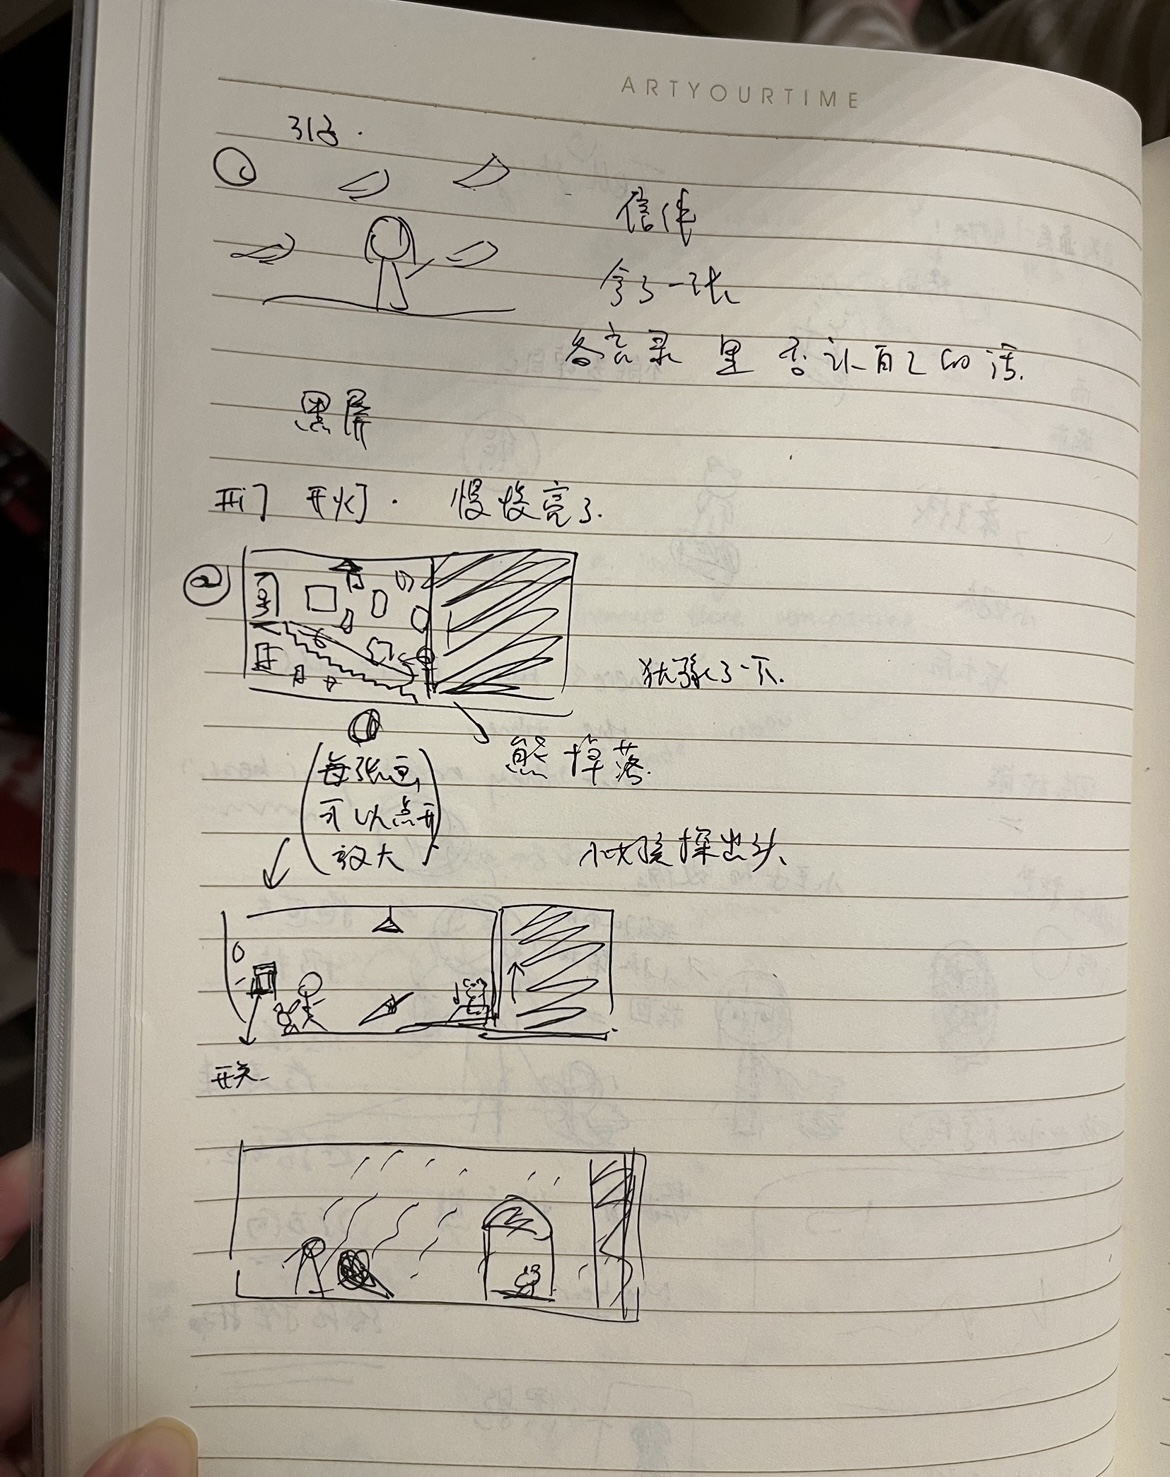 ARTYOURTIME
引子.
①
信件
拿了一张
备忘录 里 否认自己的话.
黑屏
开门 开灯. 慢慢亮了.
②
犹豫了一下.
(每张画
可以点开
放大)
熊 掉落.
小女孩探出头.
开关.